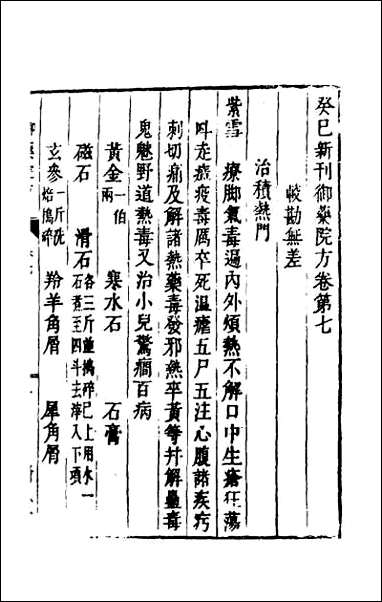 癸巳新刊御藥院方卷第七
較勘無差
治積熱門
紫雪 療脚氣毒遍內外煩熱不解口中生瘡狂蕩
呌走瘟疫毒厲卒死溫瘧五尸五注心腹諸疾㽲
刺切痛及解諸熱藥毒發邪熱卒黃等幷解蠱毒
鬼魅野道熱毒又治小兒驚癇百病
黃金一伯兩 寒水石 石膏
磁石 滑石各三斤並搗碎已上用水一石煮至四斗去滓入下項
玄參一斤洗焙搗碎 羚羊角屑 犀角屑